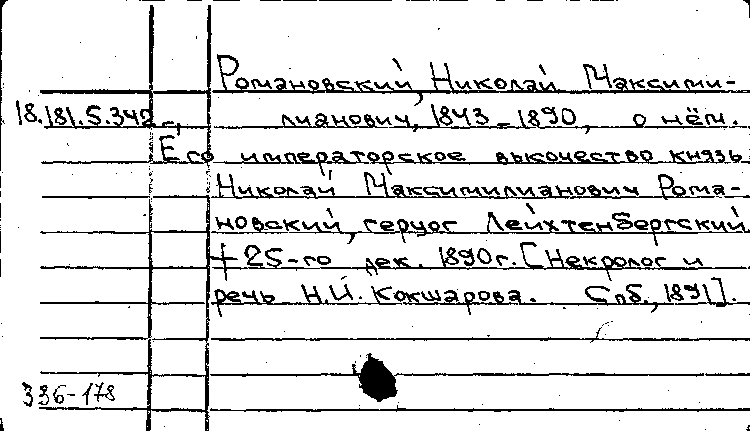 Романовский, Николай Максими-
18.181.5.342 лианович, 1843-1890, о нём.
Его императорское высочество князь
Николай Максимилианович Рома-
новский, герцог Лейхтенбергский
+ 25-го дек. 1890г. [Некролог и
речь Н.И. Кокшарова. Спб., 1891].
336-178